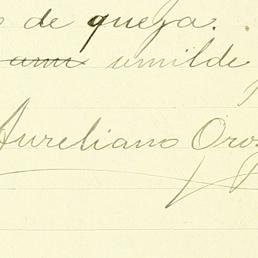 de queja.
umilde
Aureliano Oroz